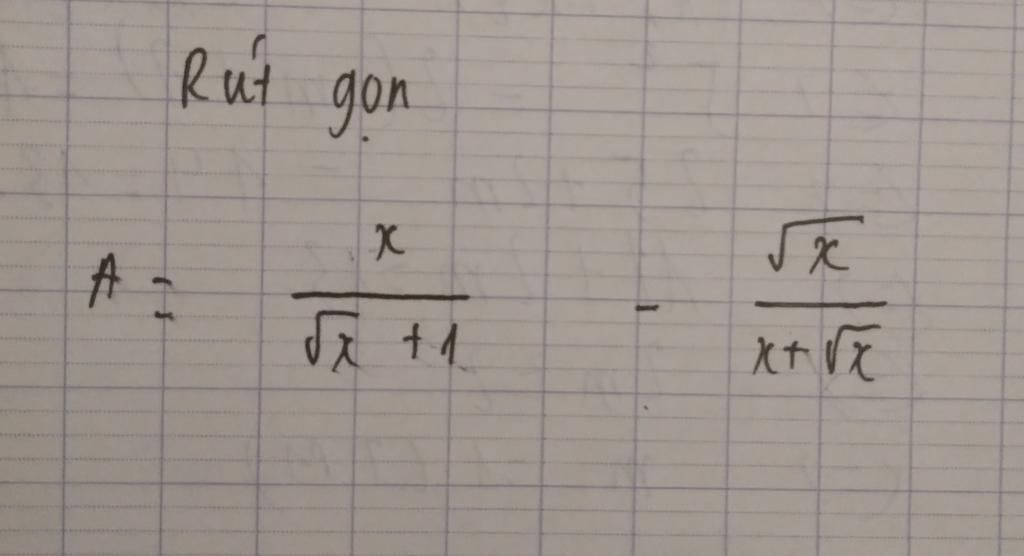 Rút gọn
A = \frac{x}{\sqrt{x} + 1} - \frac{\sqrt{x}}{x + \sqrt{x}}